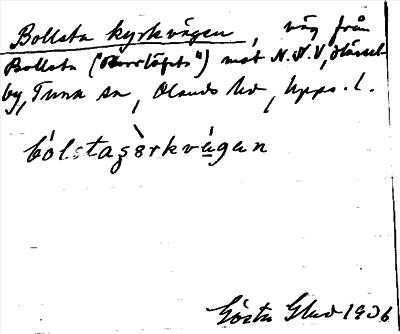 Bollsta kyrkvägen, väg från
Bollsta ("Norrlöfsta") mot N.N.V, Hässel-
by, Tuna sn, Olands hd, Upps. l.
bólstaʂò̈rkvá̱gan
Gösta Glad 1936